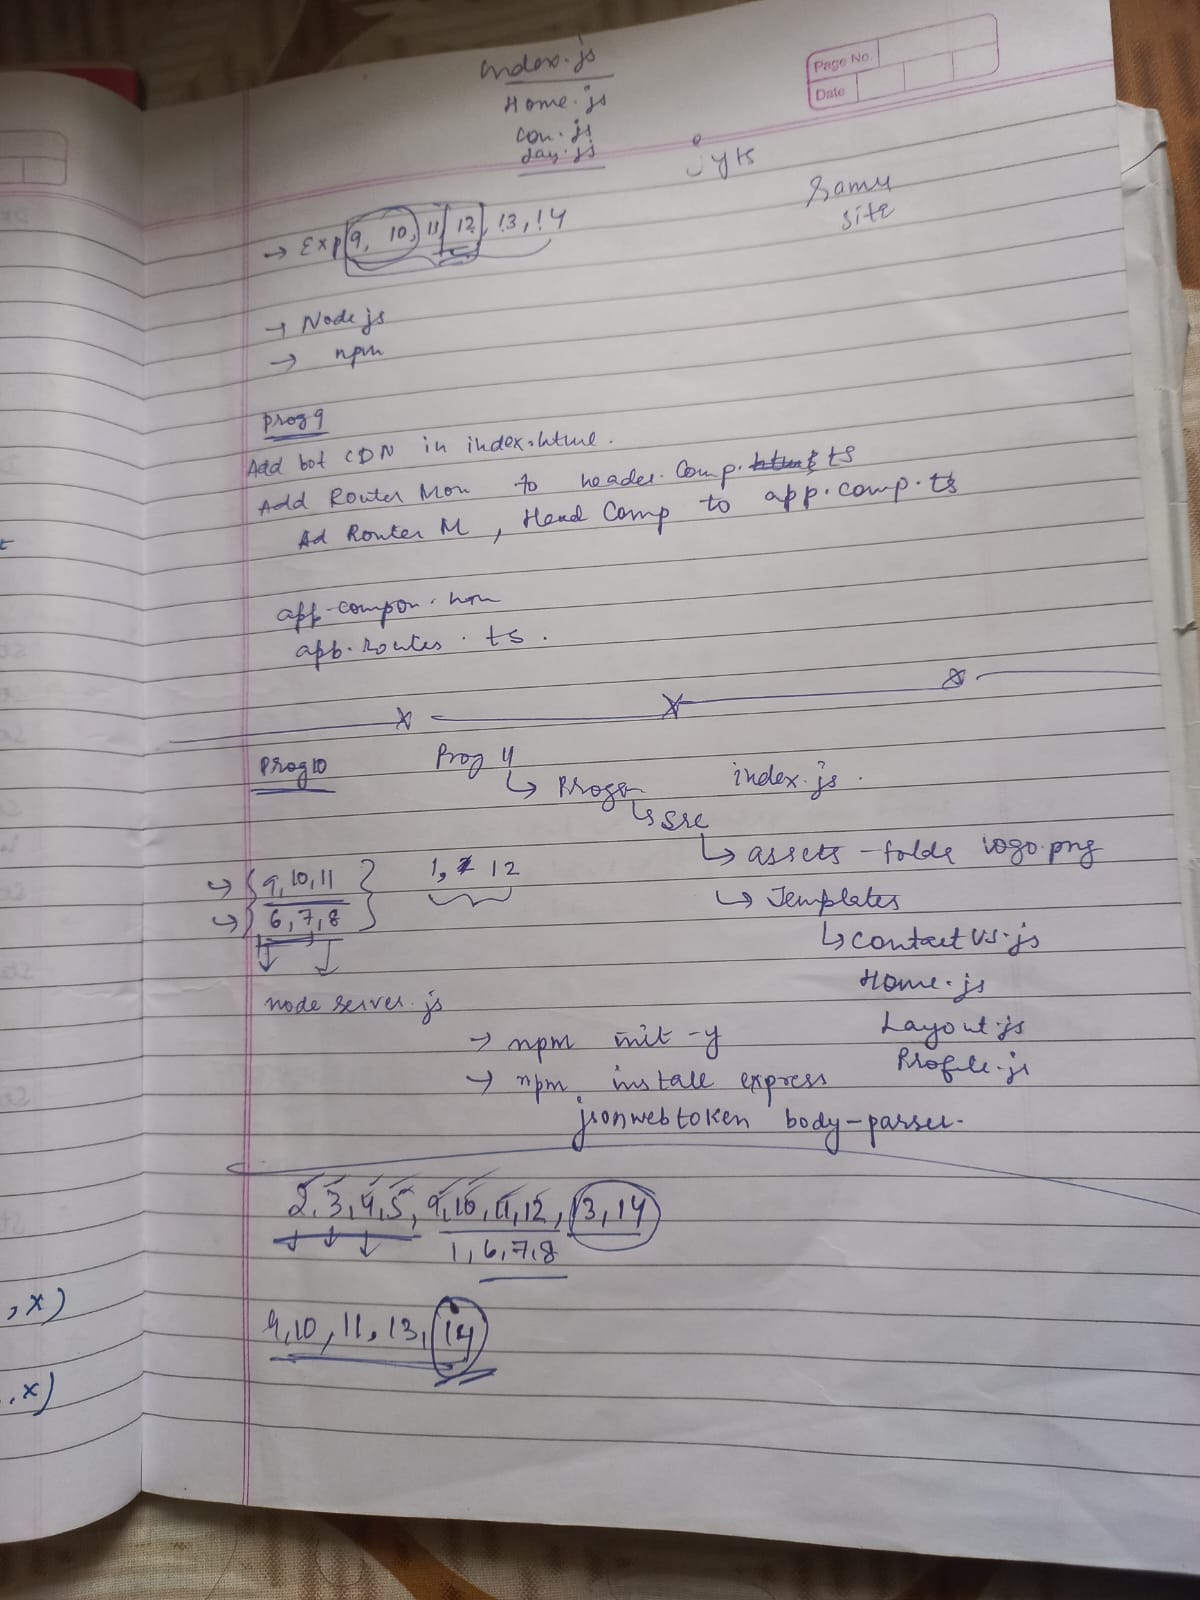 Index.js
Home.js
Con.js
Lay.js
Page No.
Date
jyts
Samu
site
→ Exp 9, 10, 11, 12, 13, 14
→ Node js
→ npm
Prog 9
Add bot CDN in index.html.
Add Router Mon to header.comp. ts
Ad Router M, Head Comp to app.comp.ts
app.compon.
app.routes.ts.
Prog 10
Prog 4
index.js.
src
assets - folde logo.png
{9, 10, 11
6, 7, 8}
1, 12
Templates
contact us.js
Home.js
Layout.js
Profile.js
node server.js
→ npm init -y
→ npm install express
jsonwebtoken body-parser.
2, 3, 4, 5, 9, 10, 11, 12, 13, 14
1, 6, 7, 8
9, 10, 11, 13, 14
, x)
, x)